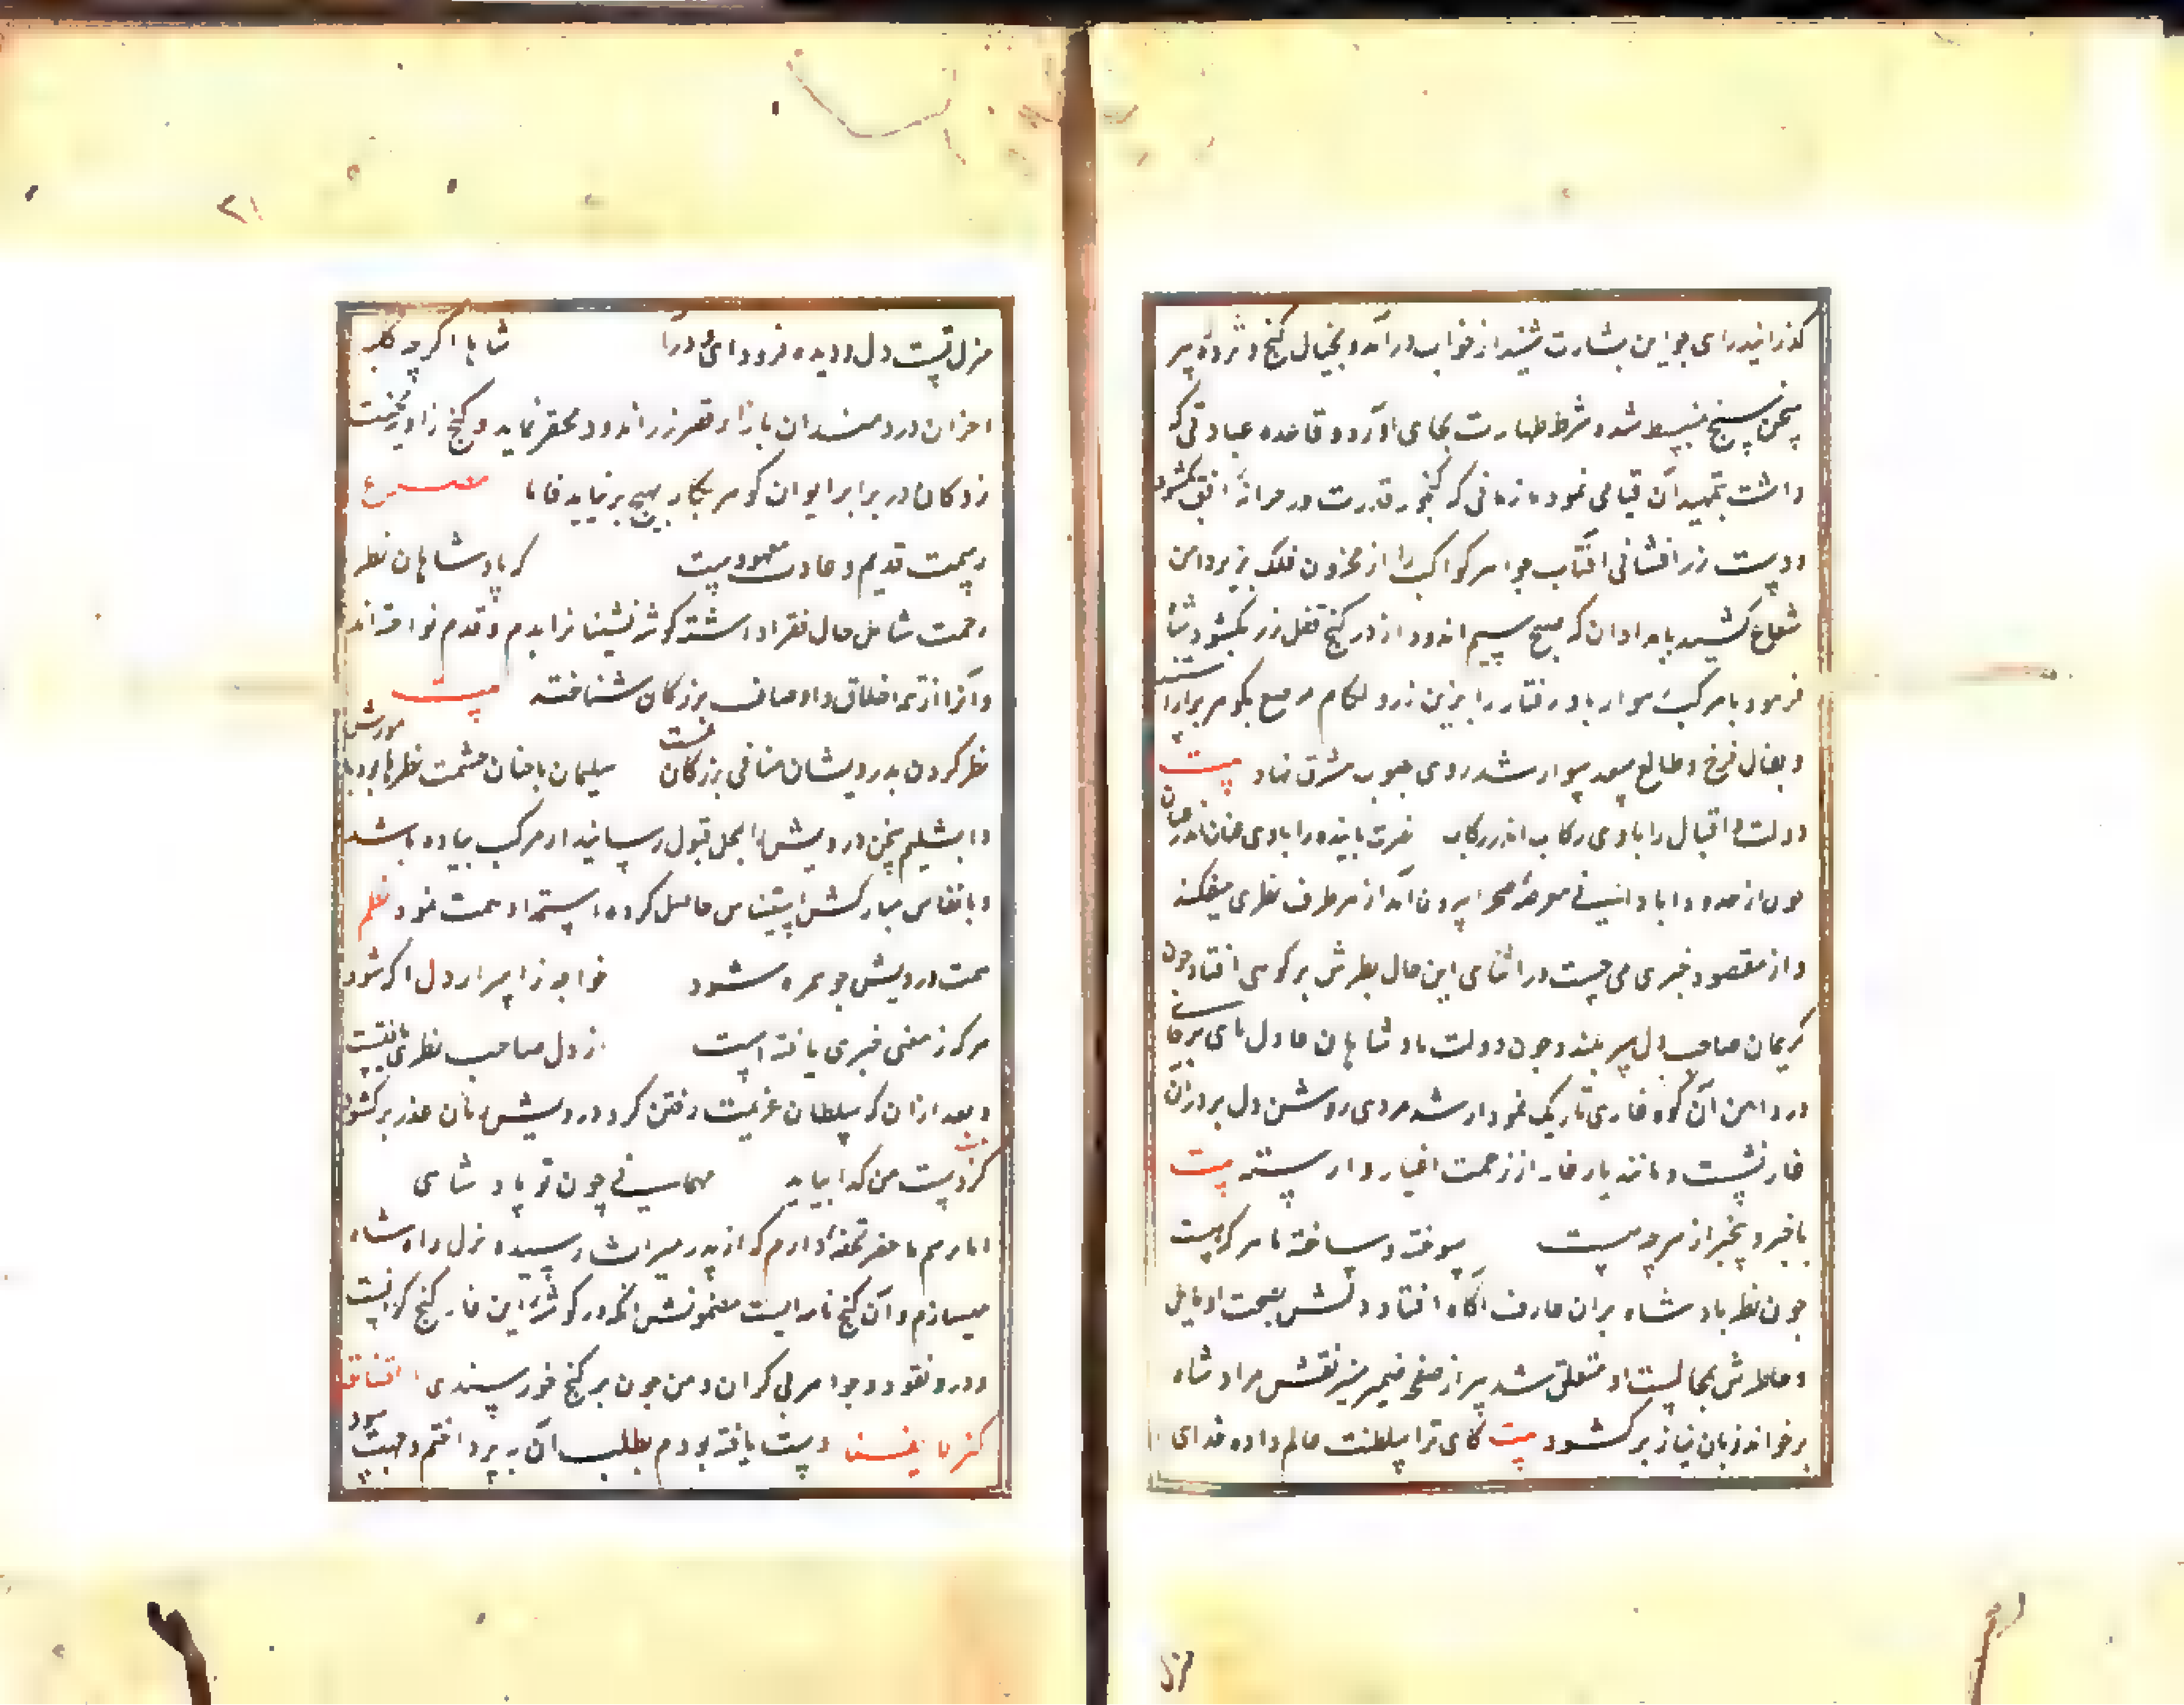 گذرانید رای جو این بشارت شنید از خواب درآمد و بخیال گنج و مژدهٔ پیر
سخن سنج منبسط شد و شرط طهارت بجای آورد و قاعده عبادتی که
داشت بتمهید آن قیامی نمود تا زمانی که گنجور قدرت در خزانهٔ افق بگشود
و دست زر افشانی آفتاب جواهر کواکب را از مخزون فلک بزیر دامن
شعاع کشید بامدادان که صبح سیم اندود از در گنج قفل زر بگشود شاه
فرمود تا مرکب هموار باد رفتار را بزین زر و لگام مرصع بگوهر بیاراستند
و بفال فرخ و طالع سعد سوار شد روی بجوب مشرق نهاد بیت
دولت و اقبال را بادی رکاب اندر رکاب نصرت پاینده را بادی عنان اندر عنان
جون از حدود ابادانیی فی معرضهٔ صحرا بیرون آمد از هر طرف نظری میفکند
و از مقصود خبری می جست در اثنای این حال نظرش بر کوهی افتاد جون
کریمان صاحب دل سر بلند و جون دولت بادشاهان عادل پای بر جا
در دامن آن کوه غاری تاریک نمودار شد مردی روشن دل بر در آن
غار نشسته و مانند یار غار از زحمت اغیار وارسته بیت
با خبر و بیخبر از هر چه هست سوخته و ساخته با هر که هست
جون نظر بادشاه بران عارف آگاه افتاد دلش بصحبت او مایل
و خاطرش بمجالست او متعلق شد پیر از صفحهٔ ضمیر منیر نقش مراد شاه
بر خواند زبان نیاز بر کشود بیت کای ترا سلطنت عالم داده خدای
منزل تست دل و دیده فرود ای و درآ شاها اگر چه کلبه
احزان دردمندان بازاء قصر زر اندود محقر نماید و کنج زاویه
در برابر ایوان گوهر نگار بهیچ بر نیاید فاما مصرع
رسمت قدیم و عادت معهودیست که بادشاهان نظر
رحمت شامل حال فقرا داشته گوشه نشینان را بدم و قدم نواخته اند
و آنرا از تتمهٔ اخلاق و اوصاف بزرگان شناخته بیت
نظر کردن بدرویشان منافی بزرگان نیست سلیمان با جنان حشمت نظرها بود با مورش
دابشلیم سخن درویش را بمحل قبول رسانید از مرکب پیاده شد
و بانفاس مبارکش استیناس حاصل کرده استمداد همت نمود نظم
همت درویش جو همره شود خواجه ز اسرار دل اگه شود
هر که ز معنی خبری یافته است از دل صاحب نظری یافتست
و بعد ازان که سلطان عزیمت رفتن کرد درویش زبان عذر بر کشود
بیت
کز دست من گدا نیاید مهمانی چون تو پادشاهی
اما رسم ما حضر تحفهٔ دارم که از پدر میراث رسیده نزل راه شاه
میسازم و آن گنج نامه ایست مضمونش انکه در گوشهٔ این غار گنج گرانیست
و درو نقود و جواهر بی کران و من جون بر گنج خورسندی القناعة
کنز لا یفنی دست یافته بودم بطلب آن نه پرداختم و جهت
منزل
۲۱